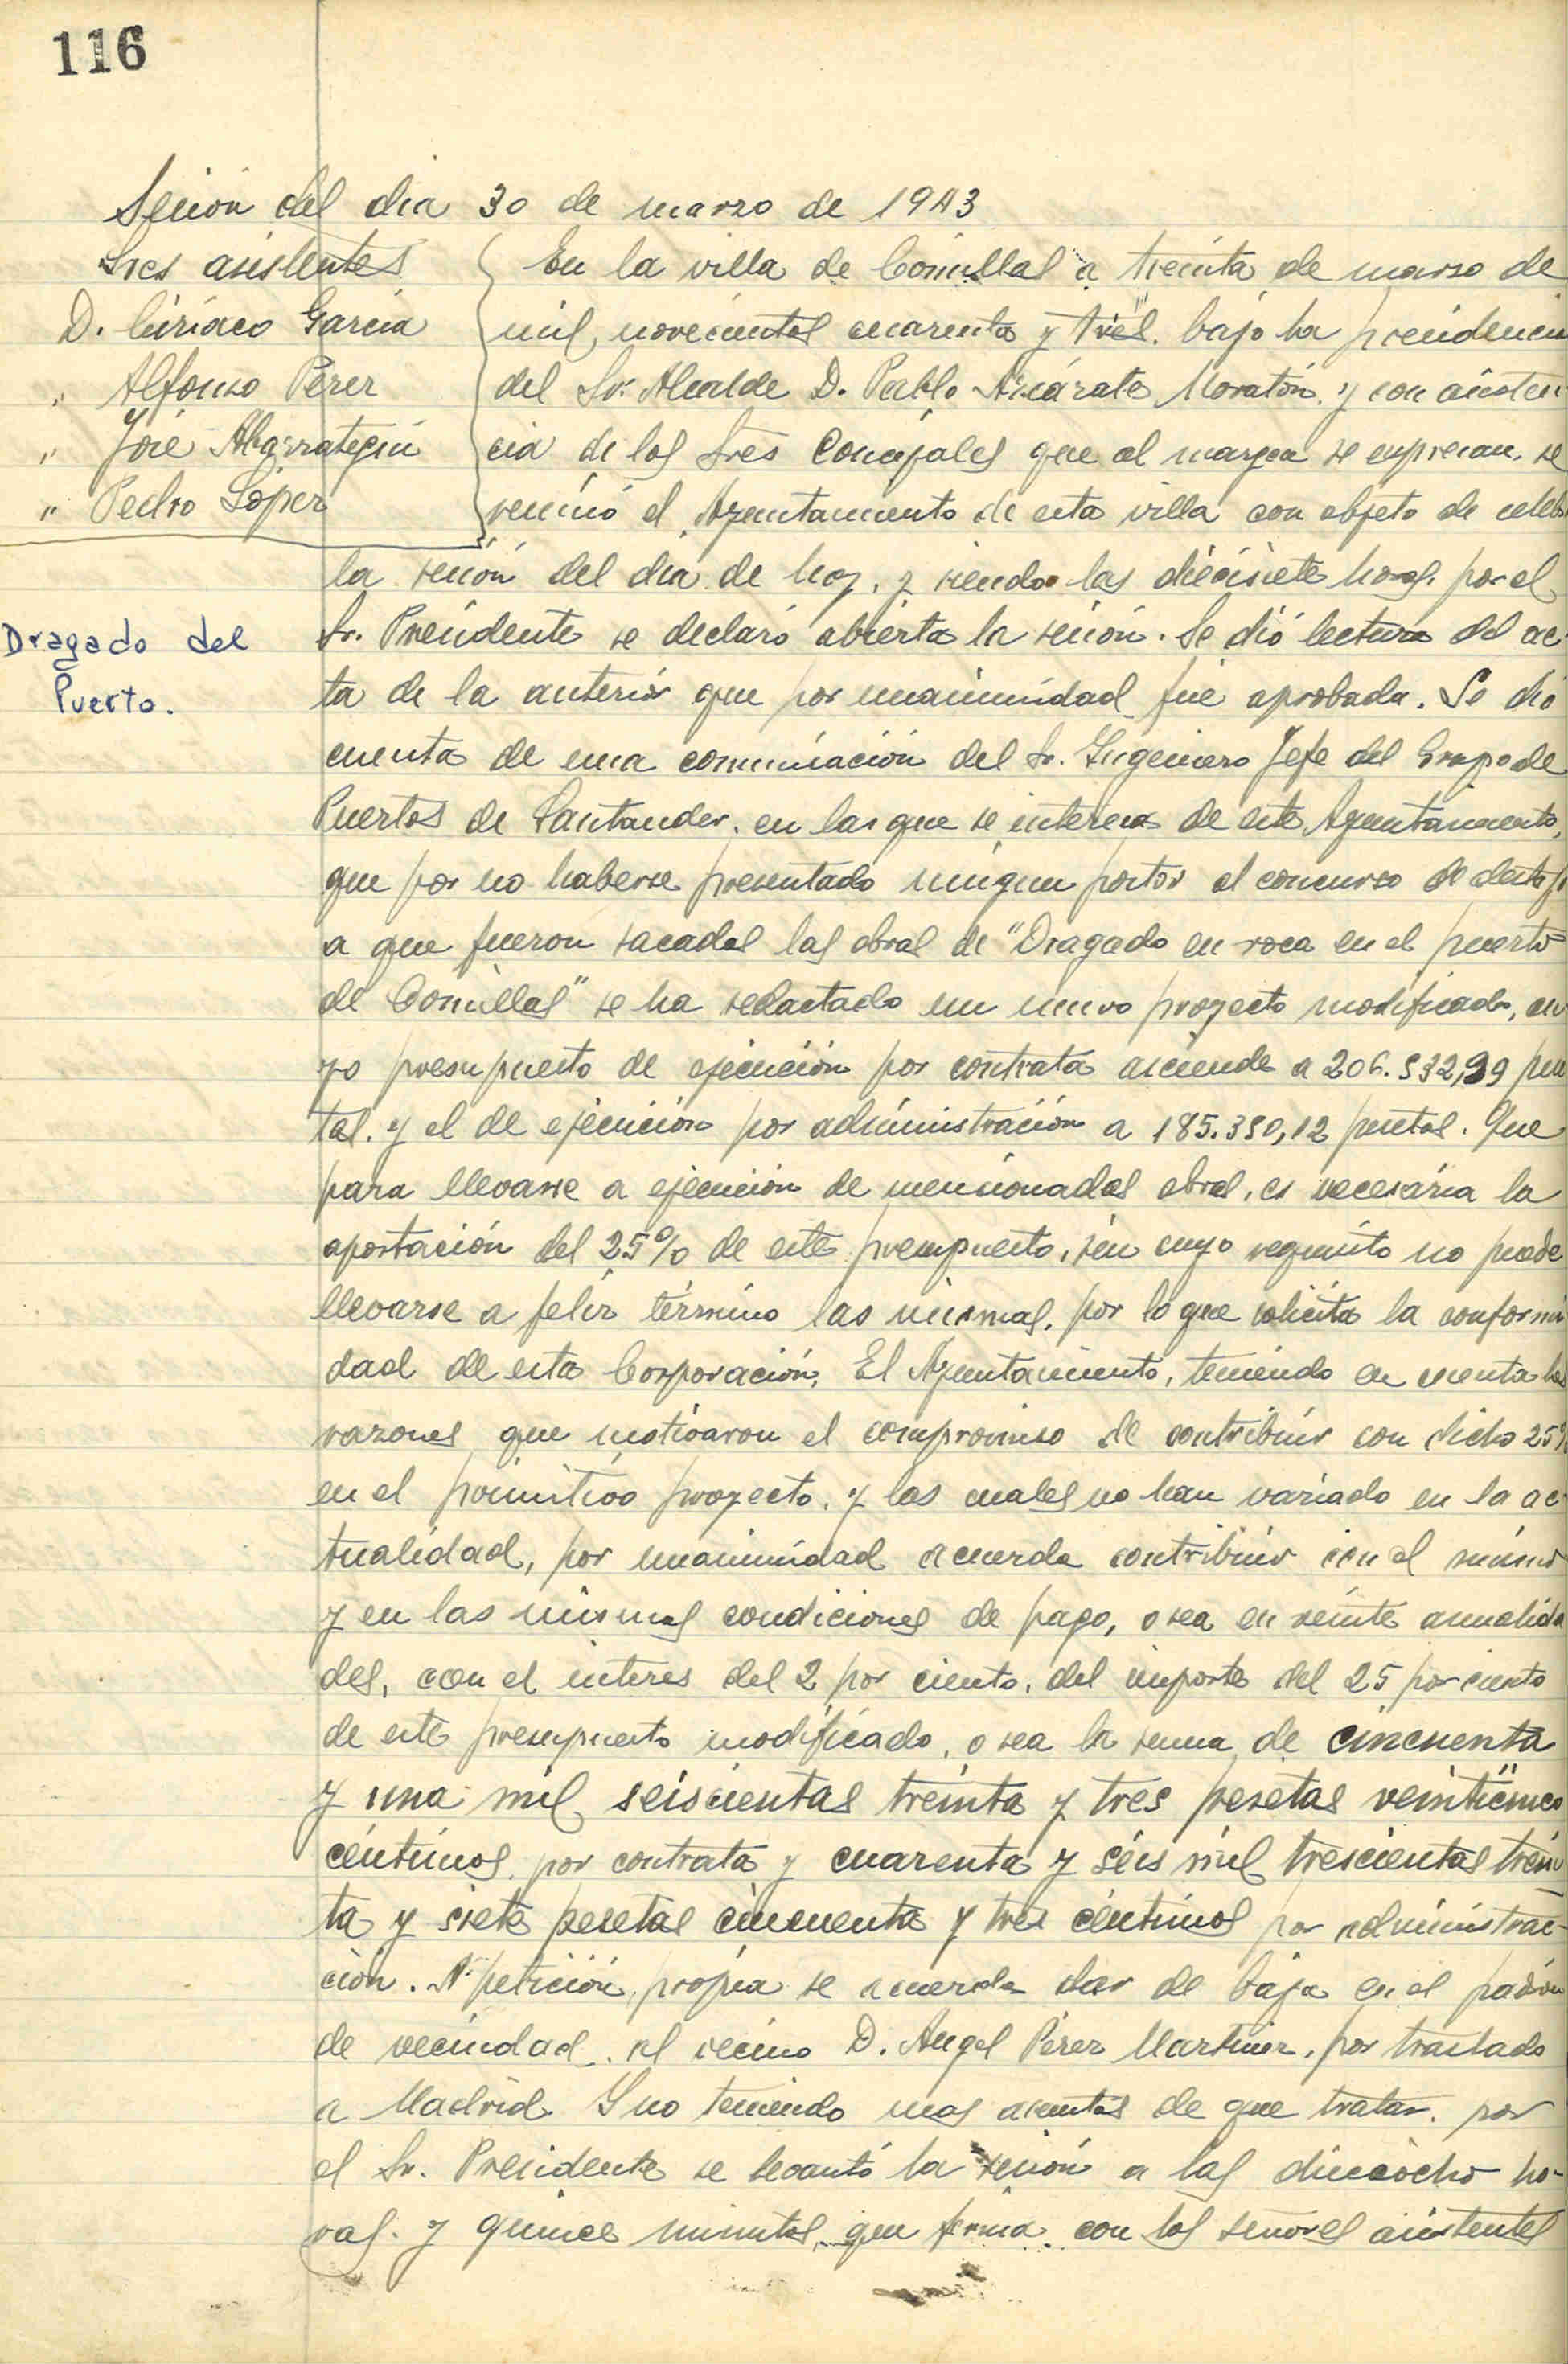 116
Sesión del dia 30 de marzo de 1943
Sres asistentes
D. Ciriaco Garcia
" Alfonso Pérez
" José Abarrategui
" Pedro López
En la villa de Comillas a treinta de marzo de
mil novecientos cuarenta y tres. bajo la presidencia
del Sr. Alcalde D. Pablo Azcárate Moratón y con asisten
cia de los Sres Concejales que al margen se expresan, se
reunió el Ayuntamiento de esta villa con objeto de celeb
la sesión del dia de hoy, y siendo las diecisiete horas, por el
Dragado del
Puerto.
Sr. Presidente se declaró abierta la sesión. Se dió lectura del ac-
ta de la anterior que por unanimidad fué aprobada. Se dió
cuenta de una comunicación del Sr. Ingeniero Jefe del Grupo de
Puertos de Santander, en las que se interesa de este Ayuntamiento,
que por no haberse presentado ningun postor al concurso de destajo
a que fueron sacadas las obras de "Dragado en roca en el puerto
de Comillas" se ha redactado un nuevo proyecto modificado, cu
yo presupuesto de ejecución por contrata asciende a 206.532,99 pese
tas. y el de ejecución por administración a 185.350,12 pesetas. Que
para llevarse a ejecución de mencionadas obras, es necesaria la
aportación del 25% de este presupuesto, sin cuyo requisito no puede
llevarse a feliz término las mismas, por lo que solicita la conformi
dad de esta Corporación. El Ayuntamiento, teniendo en cuenta las
razones que motivaron el compromiso de contribuir con dicho 25%
en el primitivo proyecto, y las cuales no han variado en la ac-
tualidad, por unanimidad acuerda contribuir con el mismo
y en las mismas condiciones de pago, o sea en veinte anualida
des, con el interes del 2 por ciento, del importe del 25 por ciento
de este presupuesto modificado, o sea la suma de cincuenta
y una mil seiscientas treinta y tres pesetas veinticinco
céntimos por contrata y cuarenta y seis mil trescientas trein
ta y siete pesetas cincuenta y tres céntimos por administrac-
ción. A petición propia se acuerda dar de baja en el padrón
de vecindad al vecino D. Angel Pérez Martinez, por traslado
a Madrid. Y no teniendo mas asuntos de que tratar, por
el Sr. Presidente se levantó la sesión a las dieciocho ho-
ras. y quince minutos, que firma con los señores asistentes